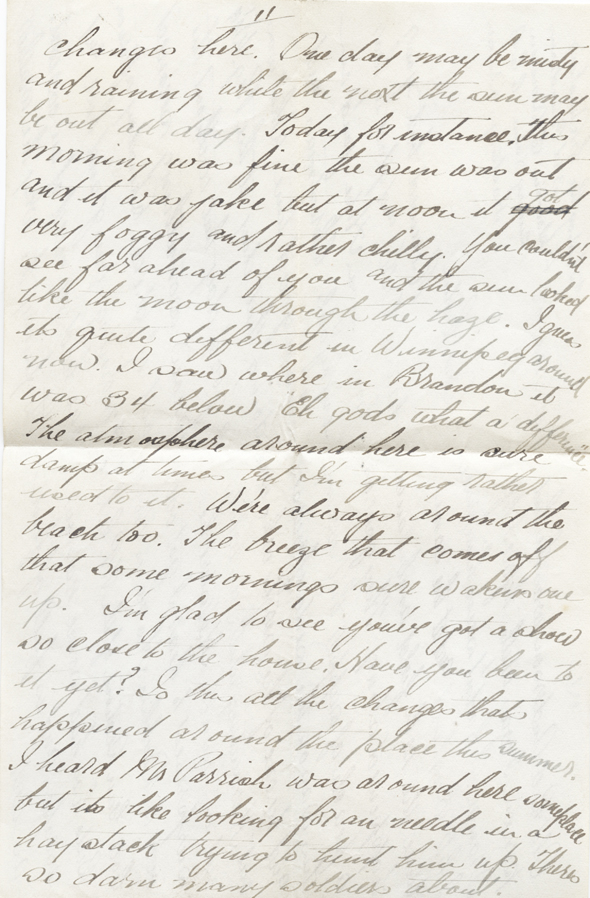 11
changes here. One day may be misty
and raining while the next the sun may
be out all day. Today for instance. This
morning was fine the sun was out
and it was jake but at noon it good got
very foggy and rather chilly. You couldn't
see far ahead of you and the sun looked
like the moon through the haze. I guess
its quite different in Winnipeg around
now. I saw where in Brandon it
was 34 below Eh gods what a difference
The atmosphere around here is sure
damp at times but I'm getting rather
used to it. We're always around the
beach too. The breeze that comes off
that some mornings sure wakens one
up. I'm glad to see you've got a show
so close to the house. Have you been to
it yet? Is this all the changes thats
happened around the place this summer.
I heard Mr Parrish was around here someplace
but its like looking for an needle in a
haystack trying to hunt him up. Theres
so darn many soldiers about.